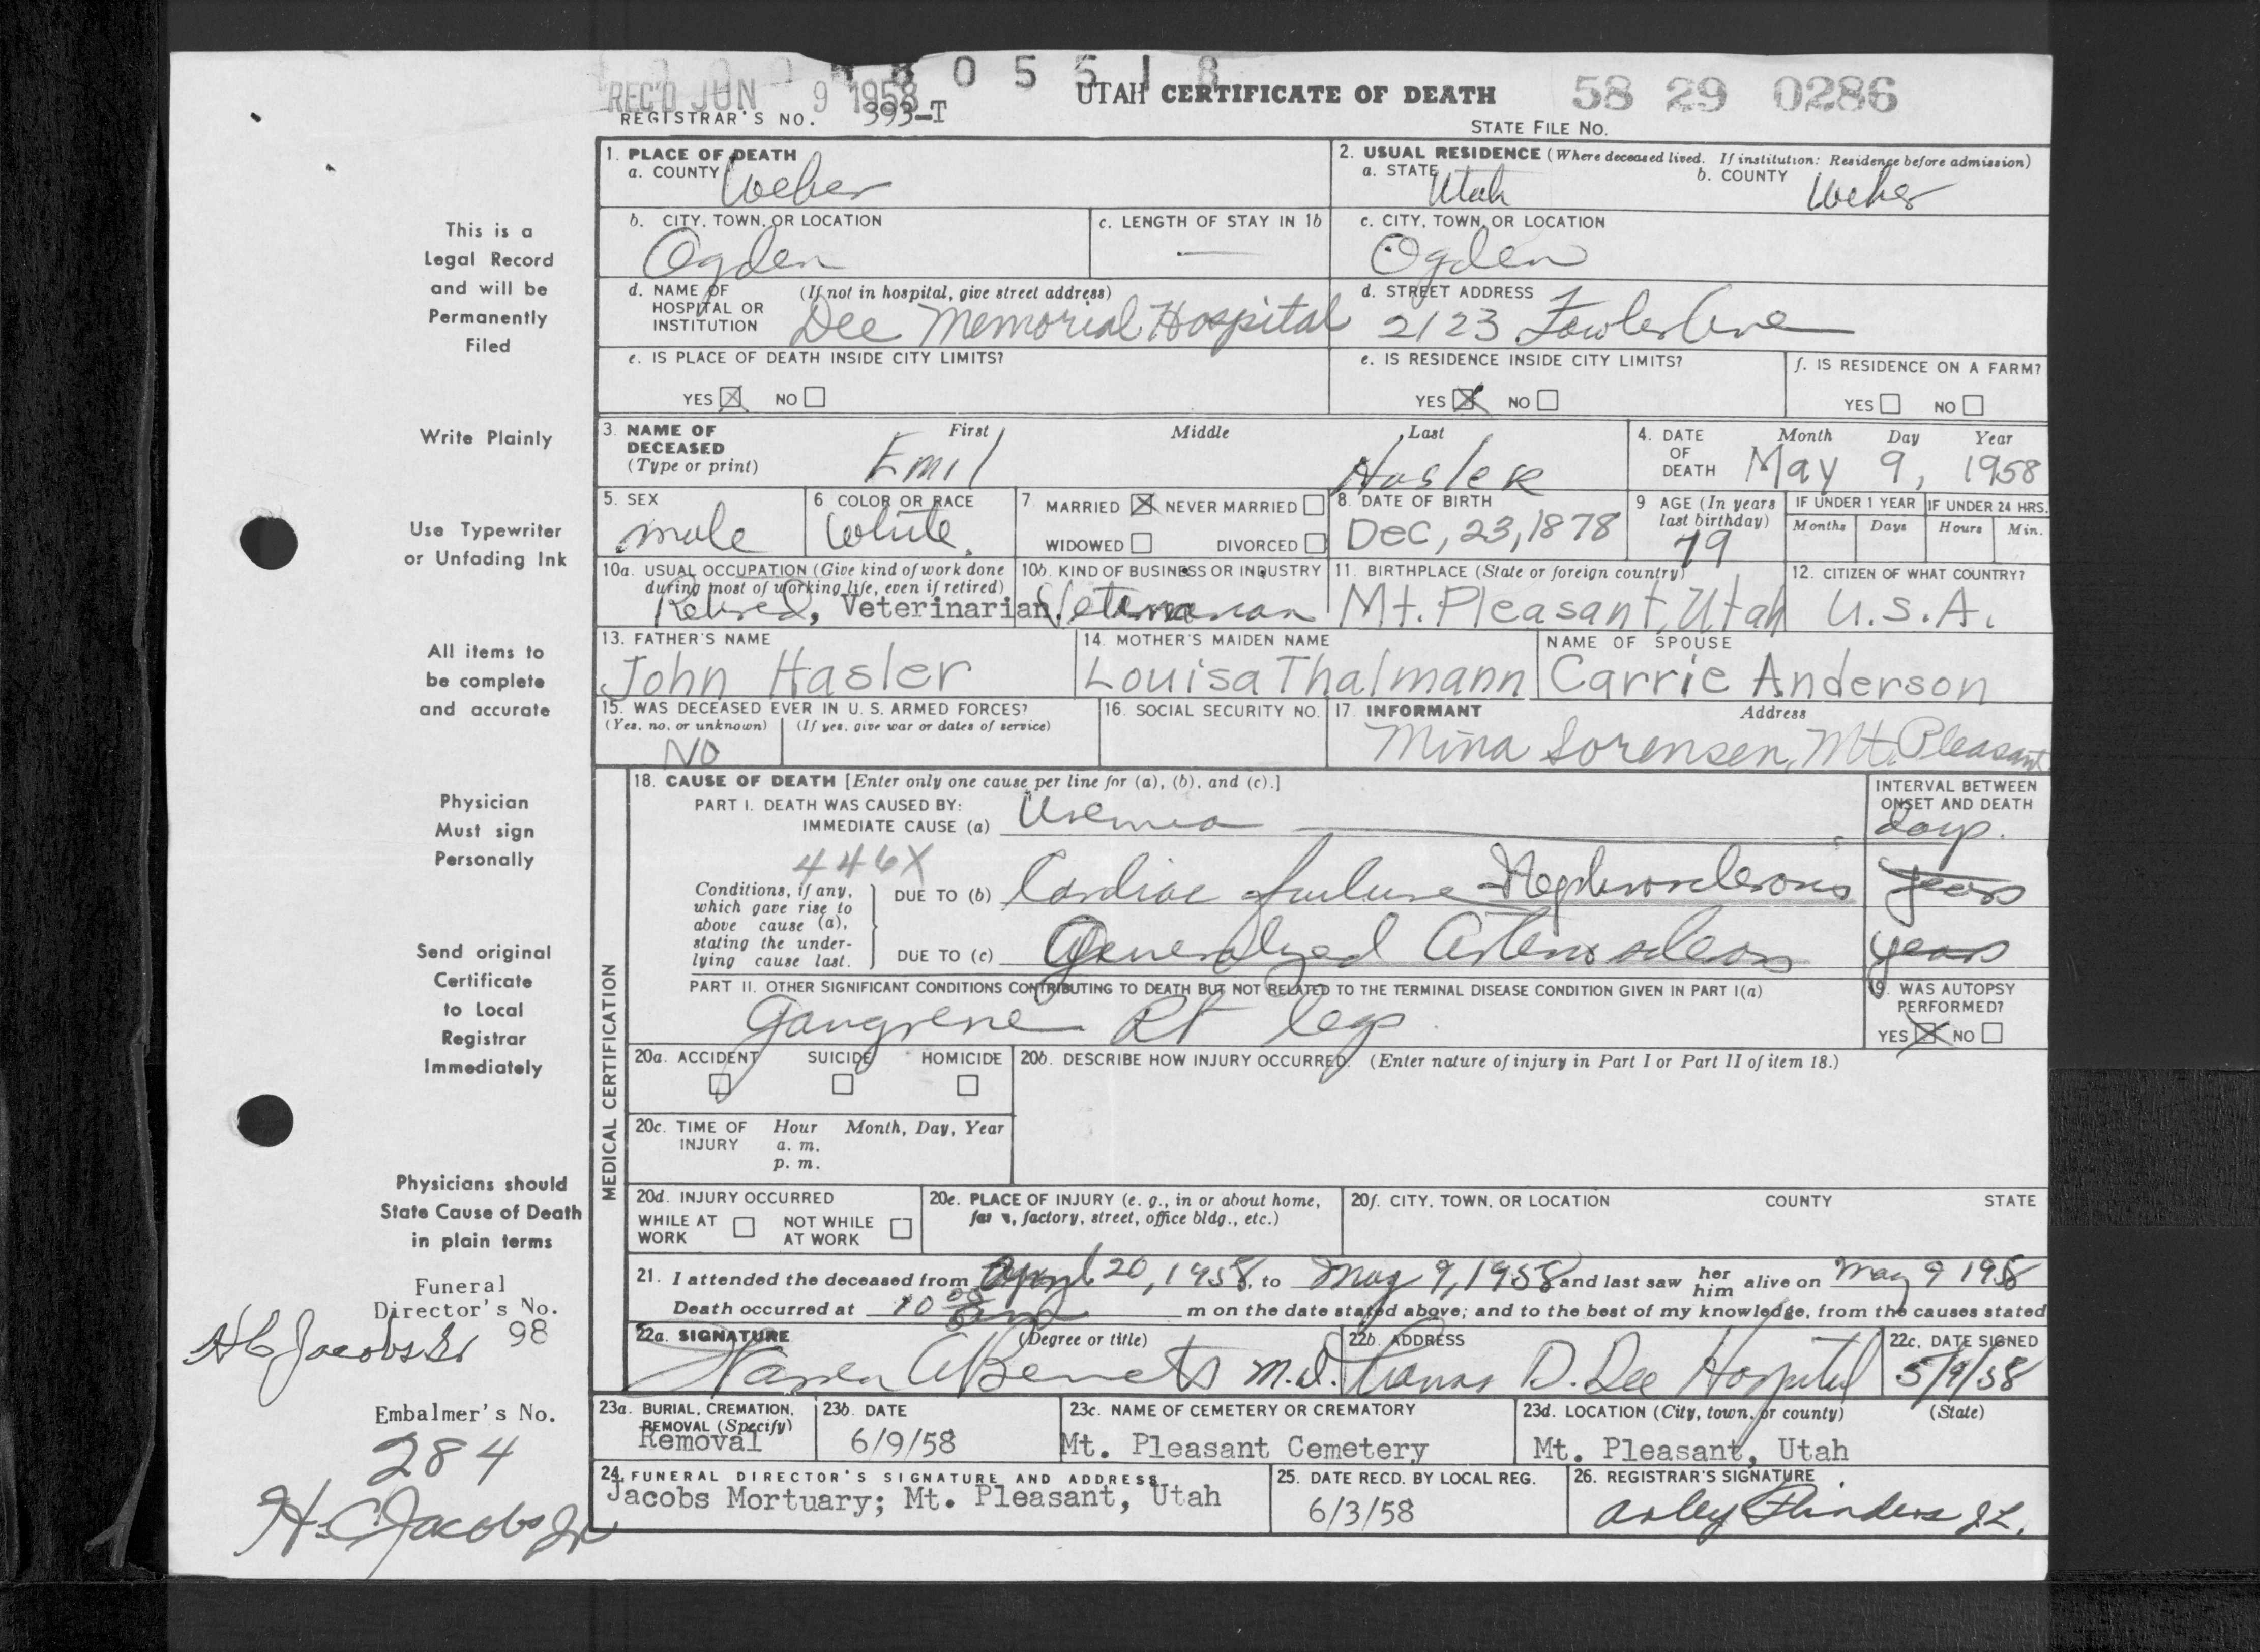 0 5 5 1 8
REC'D JUN 9 1958
UTAH CERTIFICATE OF DEATH
58 29 0286
REGISTRAR'S NO. 393-T
STATE FILE No.
This is a
Legal Record
and will be
Permanently
Filed
Write Plainly
Use Typewriter
or Unfading Ink
All items to
be complete
and accurate
Physician
Must sign
Personally
Send original
Certificate
to Local
Registrar
Immediately
Physicians should
State Cause of Death
in plain terms
Funeral
Director's No.
98
Embalmer's No.
284
H.C. Jacobs Jr
1. PLACE OF DEATH
a. COUNTY Weber
2. USUAL RESIDENCE (Where deceased lived. If institution: Residence before admission)
a. STATE Utah b. COUNTY Weber
b. CITY, TOWN, OR LOCATION
Ogden
c. LENGTH OF STAY IN 1b
—
c. CITY, TOWN, OR LOCATION
Ogden
d. NAME OF (If not in hospital, give street address)
HOSPITAL OR
INSTITUTION Dee Memorial Hospital
d. STREET ADDRESS
2123 Fowler Ave
e. IS PLACE OF DEATH INSIDE CITY LIMITS?
YES X NO
e. IS RESIDENCE INSIDE CITY LIMITS?
YES X NO
f. IS RESIDENCE ON A FARM?
YES NO
3. NAME OF First Middle Last
DECEASED
(Type or print) Emil Hasler
4. DATE Month Day Year
OF
DEATH May 9, 1958
5. SEX
male
6. COLOR OR RACE
White
7. MARRIED X NEVER MARRIED
WIDOWED DIVORCED
8. DATE OF BIRTH
Dec, 23, 1878
9 AGE (In years
last birthday)
79
IF UNDER 1 YEAR
Months Days
IF UNDER 24 HRS.
Hours Min.
10a. USUAL OCCUPATION (Give kind of work done
during most of working life, even if retired)
Retired, Veterinarian
10b. KIND OF BUSINESS OR INDUSTRY
Veterinarian
11. BIRTHPLACE (State or foreign country)
Mt. Pleasant, Utah
12. CITIZEN OF WHAT COUNTRY?
U.S.A.
13. FATHER'S NAME
John Hasler
14. MOTHER'S MAIDEN NAME
Louisa Thalmann
NAME OF SPOUSE
Carrie Anderson
15. WAS DECEASED EVER IN U. S. ARMED FORCES?
(Yes, no, or unknown) (If yes, give war or dates of service)
NO
16. SOCIAL SECURITY NO.
17. INFORMANT Address
Mina Sorensen, Mt. Pleasant
MEDICAL CERTIFICATION
18. CAUSE OF DEATH [Enter only one cause per line for (a), (b), and (c).]
PART I. DEATH WAS CAUSED BY:
IMMEDIATE CAUSE (a) Uremia
INTERVAL BETWEEN
ONSET AND DEATH
days.
446X
Conditions, if any,
which gave rise to
above cause (a),
stating the under-
lying cause last.
DUE TO (b) Cardiac failure Nephrosclerosis years
DUE TO (c) Generalized Arteriosclerosis years
PART II. OTHER SIGNIFICANT CONDITIONS CONTRIBUTING TO DEATH BUT NOT RELATED TO THE TERMINAL DISEASE CONDITION GIVEN IN PART I(a)
Gangrene Rt leg
19. WAS AUTOPSY
PERFORMED?
YES X NO
20a. ACCIDENT SUICIDE HOMICIDE
20b. DESCRIBE HOW INJURY OCCURRED. (Enter nature of injury in Part I or Part II of item 18.)
20c. TIME OF Hour Month, Day, Year
INJURY a. m.
p. m.
20d. INJURY OCCURRED
WHILE AT NOT WHILE
WORK AT WORK
20e. PLACE OF INJURY (e. g., in or about home,
farm, factory, street, office bldg., etc.)
20f. CITY, TOWN, OR LOCATION COUNTY STATE
21. I attended the deceased from April 20, 1958, to May 9, 1958 and last saw her him alive on May 9 1958
Death occurred at 10 m on the date stated above; and to the best of my knowledge, from the causes stated
22a. SIGNATURE (Degree or title)
M.D.
22b. ADDRESS
D. Dee Hospital
22c. DATE SIGNED
5/9/58
23a. BURIAL, CREMATION,
REMOVAL (Specify)
Removal
23b. DATE
6/9/58
23c. NAME OF CEMETERY OR CREMATORY
Mt. Pleasant Cemetery
23d. LOCATION (City, town, or county) (State)
Mt. Pleasant, Utah
24. FUNERAL DIRECTOR'S SIGNATURE AND ADDRESS
Jacobs Mortuary; Mt. Pleasant, Utah
25. DATE RECD. BY LOCAL REG.
6/3/58
26. REGISTRAR'S SIGNATURE
Flinders